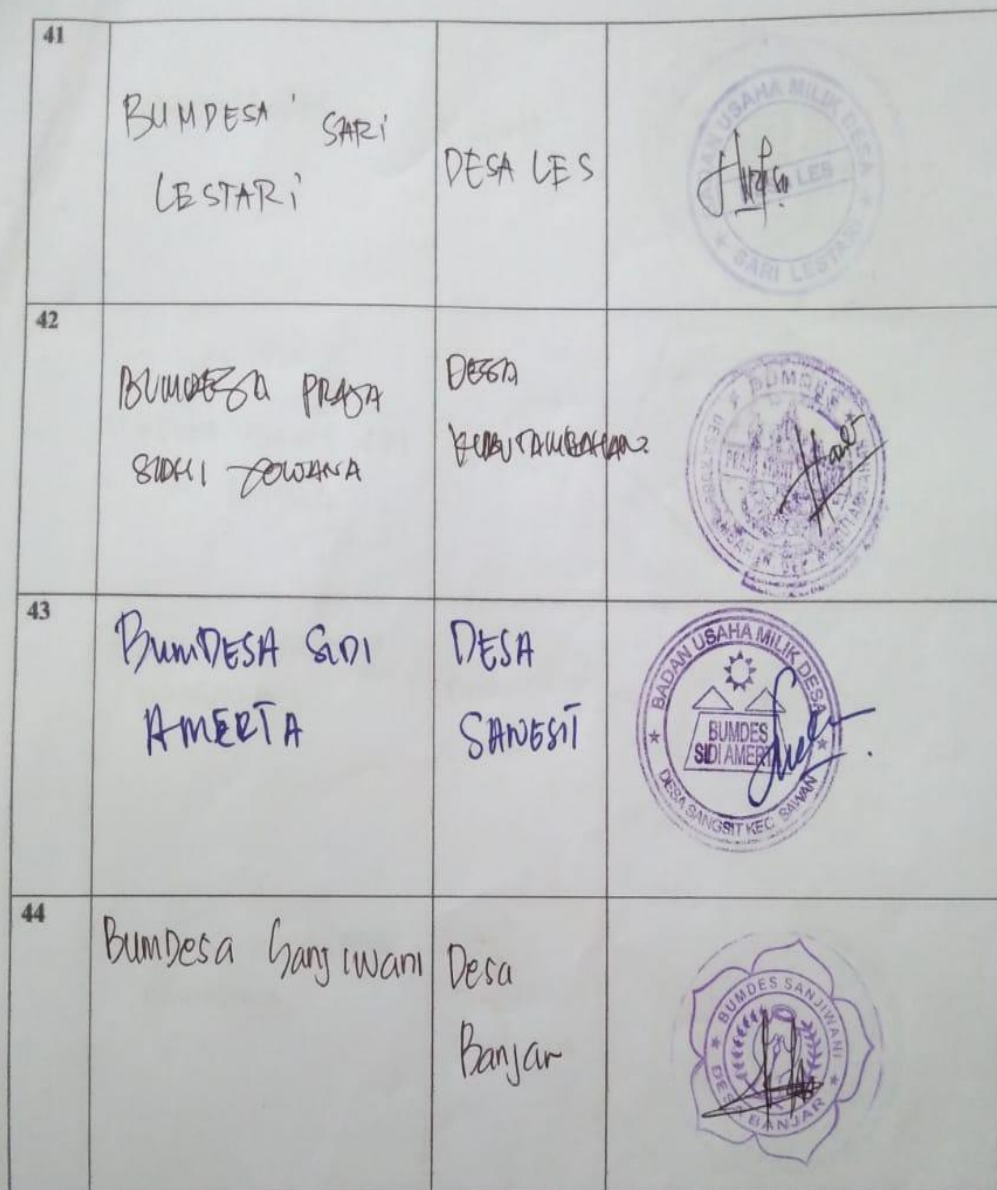 41
BUMDESA SARI
LESTARI
DESA LES
BADAN USAHA MILIK DESA
LES
SARI LESTARI
42
BUMDESA PRAJA
SIDHI YOWANA
DESA
KUBUTAMBAHAN
BUMDES
43
BUMDESA SIDI
AMERTA
DESA
SANGSIT
BADAN USAHA MILIK DESA
BUMDES
SIDI AMERTA
DESA SANGSIT KEC. SAWAN
44
BumDesa Sanjiwani
Desa
Banjar
BUMDES SANJIWANI
DESA BANJAR